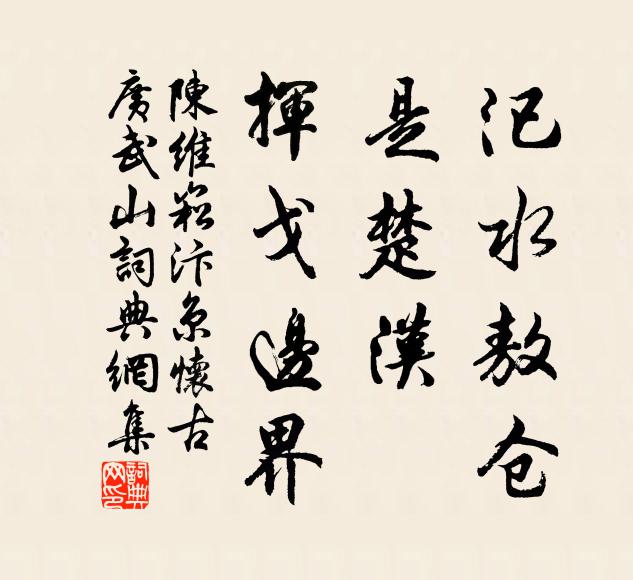 汜水敖仓
是楚漢
揮戈邊界
陳維崧汴京懷古
廣武山詞典網集
詞典
网印